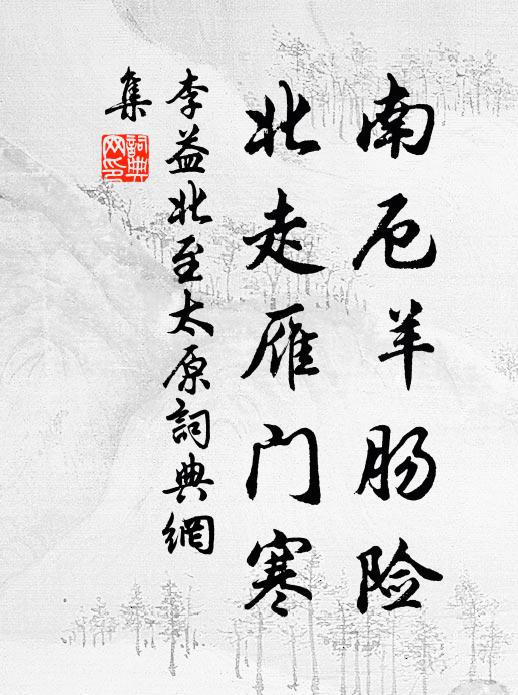 南厄羊肠险
北走雁门寒
李益北至太原詞典網
集
詞典
网印